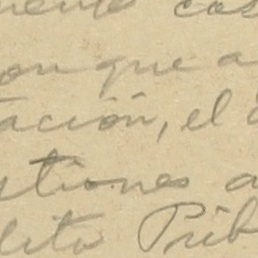 mente cos
on que a
tación, el d
stiones a
dito Púb